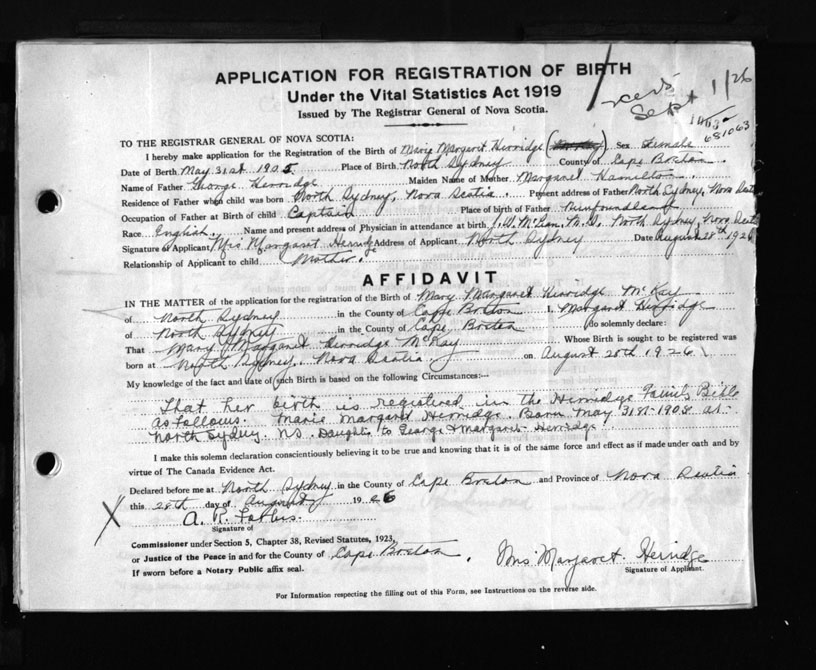 APPLICATION FOR REGISTRATION OF BIRTH
Under the Vital Statistics Act 1919
Issued by The Registrar General of Nova Scotia.
Sept 1/26
681063
TO THE REGISTRAR GENERAL OF NOVA SCOTIA:
I hereby make application for the Registration of the Birth of Marie Margaret Herridge Sex Female
Date of Birth May 31st 1905 Place of Birth North Sydney County of Cape Breton
Name of Father George Herridge Maiden Name of Mother Margaret Hamilton
Residence of Father when child was born North Sydney, Nova Scotia. Present address of Father North Sydney, Nova Scotia
Occupation of Father at Birth of child Captain Place of birth of Father Newfoundland
Race English, Name and present address of Physician in attendance at birth McLean, M.D. North Sydney, Nova Scotia
Signature of Applicant Mrs Margaret Herridge Address of Applicant North Sydney Date August 28th 1926
Relationship of Applicant to child Mother.
AFFIDAVIT
IN THE MATTER of the application for the registration of the Birth of Mary Margaret Herridge McKay
of North Sydney in the County of Cape Breton I, Margaret Herridge
of North Sydney in the County of Cape Breton do solemnly declare:
That Mary Margaret Herridge McKay Whose Birth is sought to be registered was
born at North Sydney, Nova Scotia on August 28th 1926
My knowledge of the fact and date of such Birth is based on the following Circumstances:—
That her birth is registered in the Herridge Family Bible
as follows. Marie Margaret Herridge. Born May 31st 1905 at
North Sydney. N.S. Daughter to George & Margaret Herridge.
I make this solemn declaration conscientiously believing it to be true and knowing that it is of the same force and effect as if made under oath and by
virtue of The Canada Evidence Act.
Declared before me at North Sydney in the County of Cape Breton and Province of Nova Scotia
this 28th day of August 1926
X A. R. Forbes
Signature of
Commissioner under Section 5, Chapter 38, Revised Statutes, 1923,
or Justice of the Peace in and for the County of Cape Breton. Mrs Margaret Herridge
If sworn before a Notary Public affix seal. Signature of Applicant.
For Information respecting the filling out of this Form, see Instructions on the reverse side.